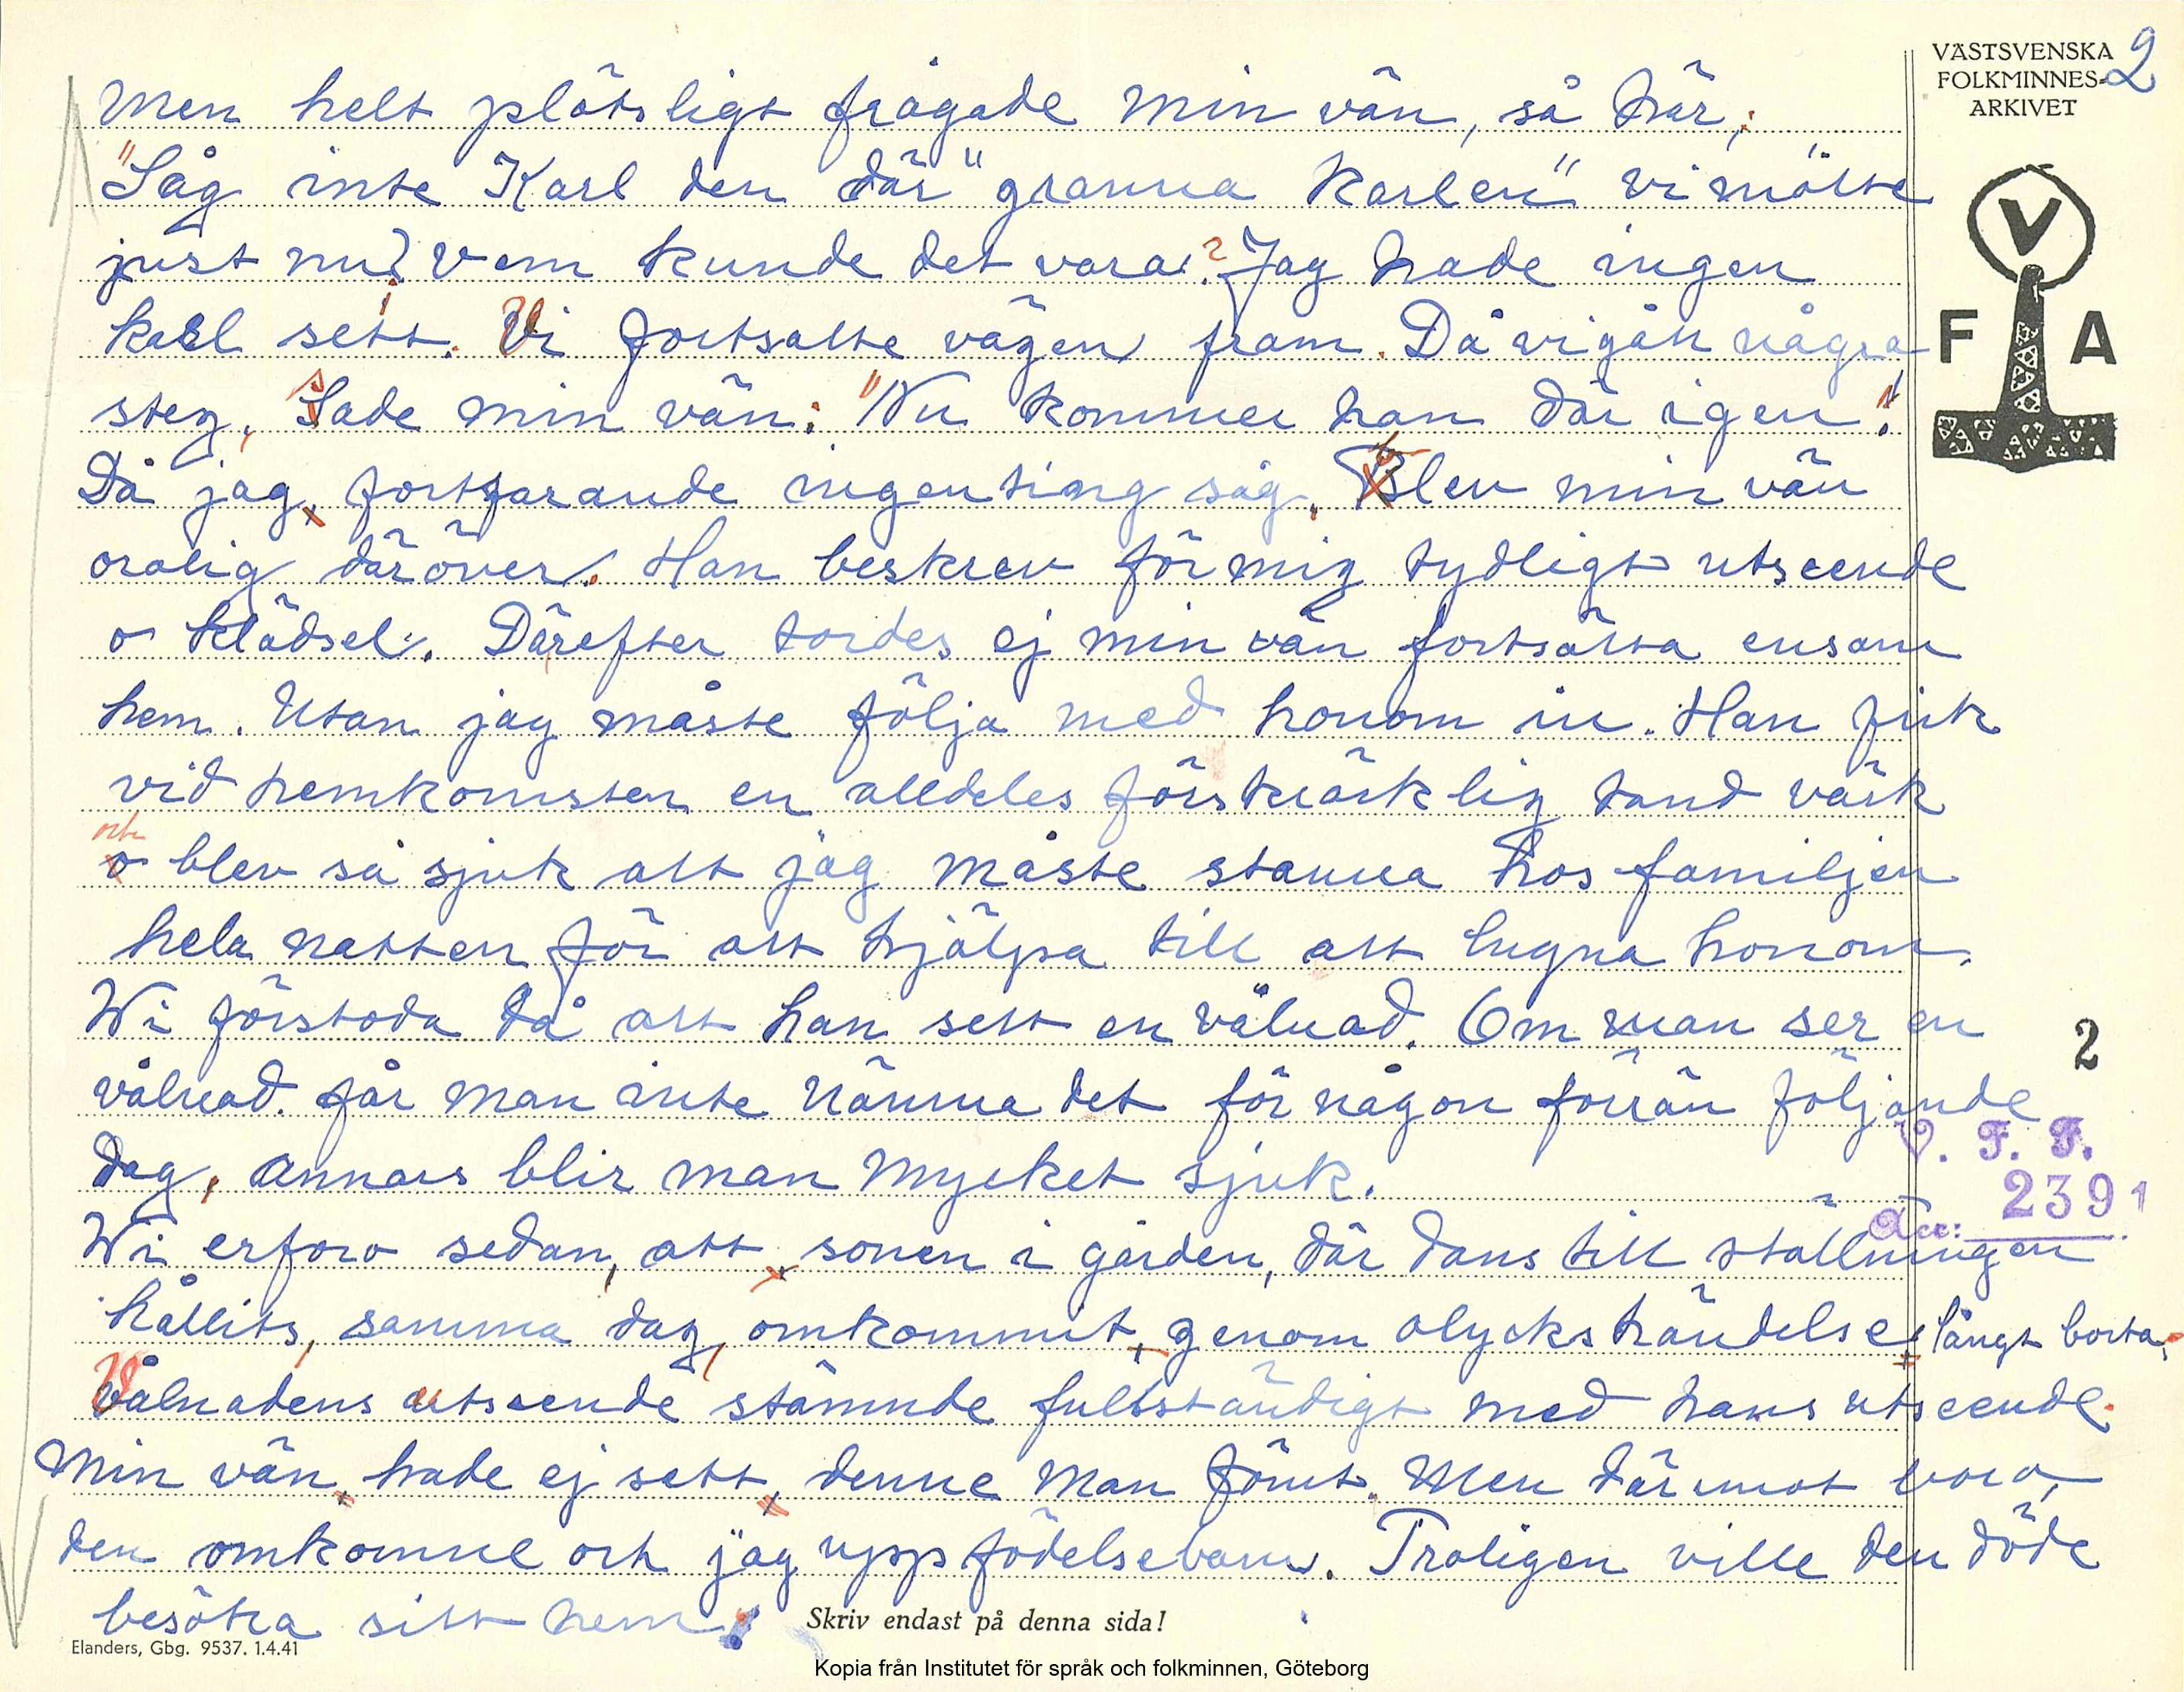 VÄSTSVENSKA
FOLKMINNES-
ARKIVET
2
V
F A
Men helt plötsligt frågade min vän, så här;
"Såg inte Karl den där "granna karlen" vi mötte
just nu? Vem kunde det vara? Jag hade ingen
karl sett. Vi fortsatte vägen fram. Då vi gått några
steg, sade min vän: "Nu kommer han där igen!"
Då jag, fortfarande ingenting såg, blev min vän
orolig däröver. Han beskrev för mig tydligt utseende
o klädsel. Därefter tordes ej min vän fortsätta ensam
hem. Utan jag måste följa med honom in. Han fick
vid hemkomsten en alldeles förskräcklig tand värk
och
o blev så sjuk att jag måste stanna hos familjen
hela natten för att hjälpa till att lugna honom.
Wi förstoda då att han sett en vålnad. Om man ser en
vålnad. får man inte nämna det för någon förrän följande
dag, annars blir man mycket sjuk.
2
V. F. F.
Acc: 2391
Wi erforo sedan, att, sonen i gården, där dans till ställningen
hållits, samma dag, omkommit, genom olyckshändelse, långt borta.
Vålnadens utseende stämde fullständigt med hans utseende.
Min vän, hade ej sett, denne man förut. Men däremot voro,
den omkomne och jag uppfödelsebarn. Troligen ville den döde
besöka sitt hem.
Skriv endast på denna sida!
Elanders, Gbg. 9537. 1.4.41
Kopia från Institutet för språk och folkminnen, Göteborg